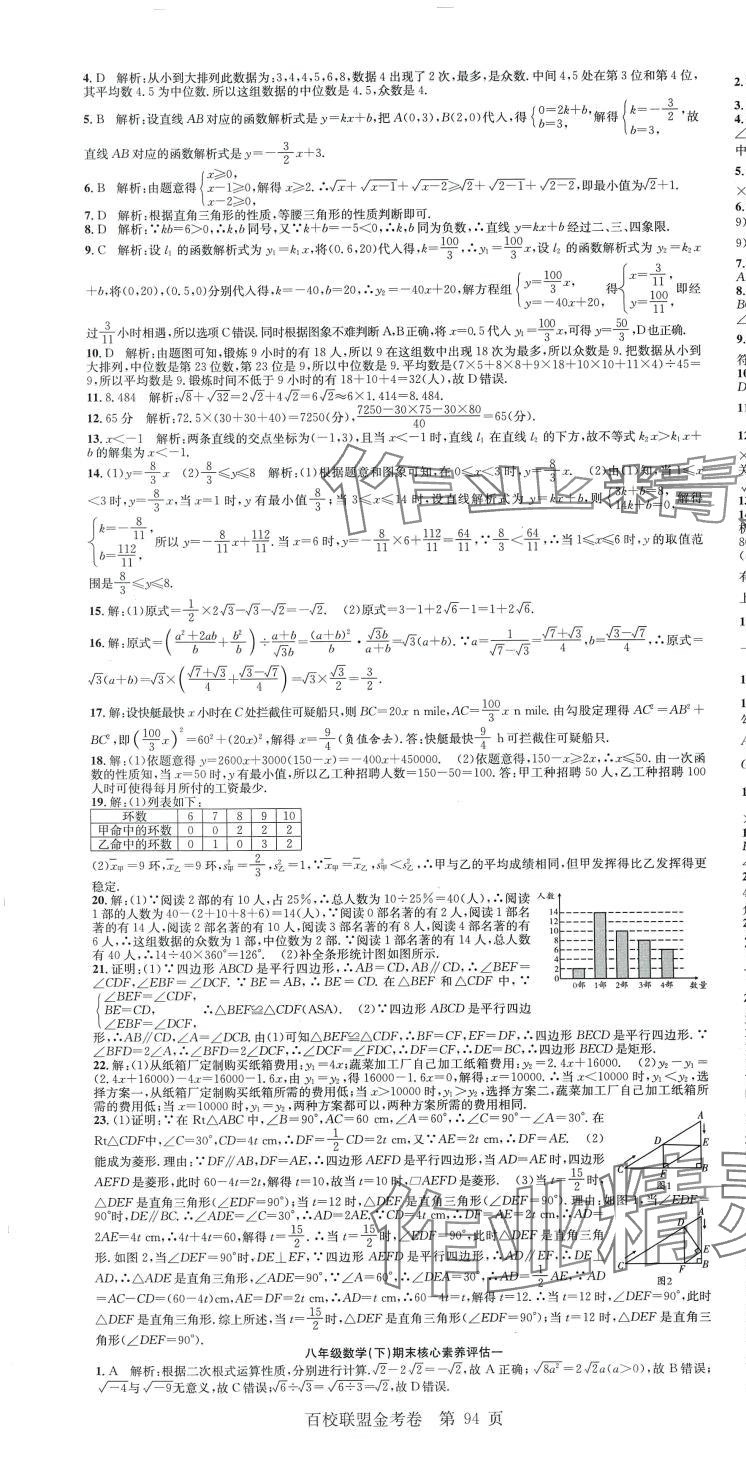 4. D　解析:从小到大排列此数据为:3,4,4,5,6,8,数据 4 出现了 2 次,最多,是众数. 中间 4,5 处在第 3 位和第 4 位,
其平均数 4.5 为中位数. 所以这组数据的中位数是 4.5,众数是 4.
5. B　解析:设直线 AB 对应的函数解析式是 y=kx+b,把 A(0,3),B(2,0)代入,得{0=2k+b, b=3, 解得{k=-3/2, b=3, 故
直线 AB 对应的函数解析式是 y=-3/2x+3.
6. B　解析:由题意得{x≥0, x-1≥0, x-2≥0, 解得 x≥2. ∴√x+√(x-1)+√(x-2)≥√2+√(2-1)+√(2-2),即最小值为√2+1.
7. D　解析:根据直角三角形的性质,等腰三角形的性质判断即可.
8. D　解析:∵kb=6>0,∴k,b 同号,又∵k+b=-5<0,∴k,b 同为负数,∴直线 y=kx+b 经过二、三、四象限.
9. C　解析:设 l₁ 的函数解析式为 y₁=k₁x,将(0.6,20)代入得,k=100/3,∴y₁=100/3x,设 l₂ 的函数解析式为 y₂=k₂x
+b,将(0,20),(0.5,0)分别代入得,k=-40,b=20,∴y₂=-40x+20,解方程组{y=100/3x, y=-40x+20, 得{x=3/11, y=100/11, 即经
过3/11小时相遇,所以选项 C 错误. 同时根据图象不难判断 A,B 正确,将 x=0.5 代入 y₁=100/3x,可得 y=50/3,D 也正确.
10. D　解析:由题图可知,锻炼 9 小时的有 18 人,所以 9 在这组数中出现 18 次为最多,所以众数是 9. 把数据从小到
大排列,中位数是第 23 位数,第 23 位是 9,所以中位数是 9. 平均数是(7×5+8×8+9×18+10×10+11×4)÷45=
9,所以平均数是 9. 锻炼时间不低于 9 小时的有 18+10+4=32(人),故 D 错误.
11. 8.484　解析:√8+√32=2√2+4√2=6√2≈6×1.414=8.484.
12. 65 分　解析:72.5×(30+30+40)=7250(分),(7250-30×75-30×80)/40=65(分).
13. x<-1　解析:两条直线的交点坐标为(-1,3),且当 x<-1 时,直线 l₁ 在直线 l₂ 的下方,故不等式 k₂x>k₁x+
b 的解集为 x<-1.
14. (1)y=8/3x　(2)8/3≤y≤8　解析:(1)根据题意和图象可知,在 0≤x<3 时,y=8/3x.　(2)由(1)知,当 1≤x
<3 时,y=8/3x,当 x=1 时,y 有最小值8/3;当 3≤x≤14 时,设直线解析式为 y=kx+b,则{3k+b=8, 14k+b=0, 解得
{k=-8/11, b=112/11, 所以 y=-8/11x+112/11. 当 x=6 时,y=-8/11×6+112/11=64/11,∵64/11<8,∴当 1≤x≤6 时,y 的取值范
围是8/3≤y≤8.
15. 解:(1)原式=1/2×2√3-√3-√2=-√2.　(2)原式=3-1+2√6-1=1+2√6.
16. 解:原式=((a²+2ab)/b+b²/b)÷(a+b)/(√3b)=(a+b)²/b·√3b/(a+b)=√3(a+b). ∵a=1/(√7-√3)=(√7+√3)/4,b=(√3-√7)/4,∴原式=
√3(a+b)=√3×((√7+√3)/4+(√3-√7)/4)=√3×√3/2=3/2.
17. 解:设快艇最快 x 小时在 C 处拦截住可疑船只,则 BC=20x n mile,AC=100/3x n mile. 由勾股定理得 AC²=AB²+
BC²,即(100/3x)²=60²+(20x)²,解得 x=9/4(负值舍去). 答:快艇最快9/4 h 可拦截住可疑船只.
18. 解:(1)依题意得 y=2600x+3000(150-x)=-400x+450000.　(2)依题意得,150-x≥2x,∴x≤50. 由一次函
数的性质知,当 x=50 时,y 有最小值,所以乙工种招聘人数=150-50=100. 答:甲工种招聘 50 人,乙工种招聘 100
人时可使得每月所付的工资最少.
19. 解:(1)列表如下:
环数　6　7　8　9　10
甲命中的环数　0　0　2　2　2
乙命中的环数　0　1　0　3　2
(2)x̄甲=9 环,x̄乙=9 环,s²甲=2/3,s²乙=1,∵x̄甲=x̄乙,s²甲<s²乙,∴甲与乙的平均成绩相同,但甲发挥得比乙发挥得更
稳定.
20. 解:(1)∵阅读 2 部的有 10 人,占 25%,∴总人数为 10÷25%=40(人),∴阅读
1 部的人数为 40-(2+10+8+6)=14(人),∵阅读 0 部名著的有 2 人,阅读 1 部名
著的有 14 人,阅读 2 部名著的有 10 人,阅读 3 部名著的有 8 人,阅读 4 部名著的有
6 人,∴这组数据的众数为 1 部,中位数为 2 部. ∵阅读 1 部名著的有 14 人,总人数
有 40 人,∴14÷40×360°=126°.　(2)补全条形统计图如图所示.
人数
14
12
10
8
6
4
2
0部　1部　2部　3部　4部　数量
21. 证明:(1)∵四边形 ABCD 是平行四边形,∴AB=CD,AB∥CD,∴∠BEF=
∠CDF,∠EBF=∠DCF. ∵BE=AB,∴BE=CD. 在△BEF 和△CDF 中,∵
{∠BEF=∠CDF,
BE=CD,　∴△BEF≌△CDF(ASA).　(2)∵四边形 ABCD 是平行四边
∠EBF=∠DCF,
形,∴AB∥CD,∠A=∠DCB. 由(1)可知△BEF≌△CDF,∴BF=CF,EF=DF,∴四边形 BECD 是平行四边形. ∵
∠BFD=2∠A,∴∠BFD=2∠DCF,∴∠DCF=∠FDC,∴DF=CF,∴BC=DE,∴四边形 BECD 是矩形.
22. 解:(1)从纸箱厂定制购买纸箱费用:y₁=4x;蔬菜加工厂自己加工纸箱费用:y₂=2.4x+16000.　(2)y₂-y₁=
(2.4x+16000)-4x=16000-1.6x,由 y₁=y₂,得 16000-1.6x=0,解得:x=10000. ∴当 x<10000 时,y₁<y₂,选
择方案一,从纸箱厂定制购买纸箱所需的费用低;当 x>10000 时,y₁>y₂,选择方案二,蔬菜加工厂自己加工纸箱所
需的费用低;当 x=10000 时,y₁=y₂,两种方案都可以,两种方案所需的费用相同.
23. (1)证明:∵在 Rt△ABC 中,∠B=90°,AC=60 cm,∠A=60°,∴∠C=90°-∠A=30°. 在
Rt△CDF中,∠C=30°,CD=4t cm,∴DF=1/2CD=2t cm,又∵AE=2t cm,∴DF=AE.　(2)
能成为菱形. 理由:∵DF∥AB,DF=AE,∴四边形 AEFD 是平行四边形,当 AD=AE 时,四边形
AEFD 是菱形,此时 60-4t=2t,解得 t=10,故当 t=10 时,▱AEFD 是菱形.　(3)当 t=15/2时,
△DEF 是直角三角形(∠EDF=90°);当 t=12 时,△DEF 是直角三角形(∠DEF=90°). 理由:如图 1,当∠EDF=
90°时,DE∥BC. ∴∠ADE=∠C=30°,∴AD=2AE,∵CD=4t cm,∴DF=AE=2t cm,∴AD=
2AE=4t cm,∴4t+4t=60,解得 t=15/2. ∴当 t=15/2时,∠EDF=90°,此时△DEF 是直角三角
形. 如图 2,当∠DEF=90°时,DE⊥EF,∵四边形 AEFD 是平行四边形,∴AD∥EF,∴DE⊥
AD,∴△ADE 是直角三角形,∠ADE=90°. ∵∠A=60°,∴∠DEA=30°,∴AD=1/2AE,∵AD
=AC-CD=(60-4t)cm,AE=DF=2t cm,∴AD=t cm,∴60-4t=t,解得 t=12. ∴当 t=12 时,∠DEF=90°,此时
△DEF 是直角三角形. 综上所述,当 t=15/2时,△DEF 是直角三角形(∠EDF=90°);当 t=12 时,△DEF 是直角三
角形(∠DEF=90°).
A
D
E
C
F
B
图1
A
D
E
C
F
B
图2
八年级数学(下)期末核心素养评估一
1. A　解析:根据二次根式运算性质,分别进行计算. √2-2√2=-√2,故 A 正确;√(8a²)=2√2a(a>0),故 B 错误;
√-4与√-9无意义,故 C 错误;√6÷√3=√(6÷3)=√2,故 D 错误.
百校联盟金考卷　第 94 页
作业精灵
作业精灵